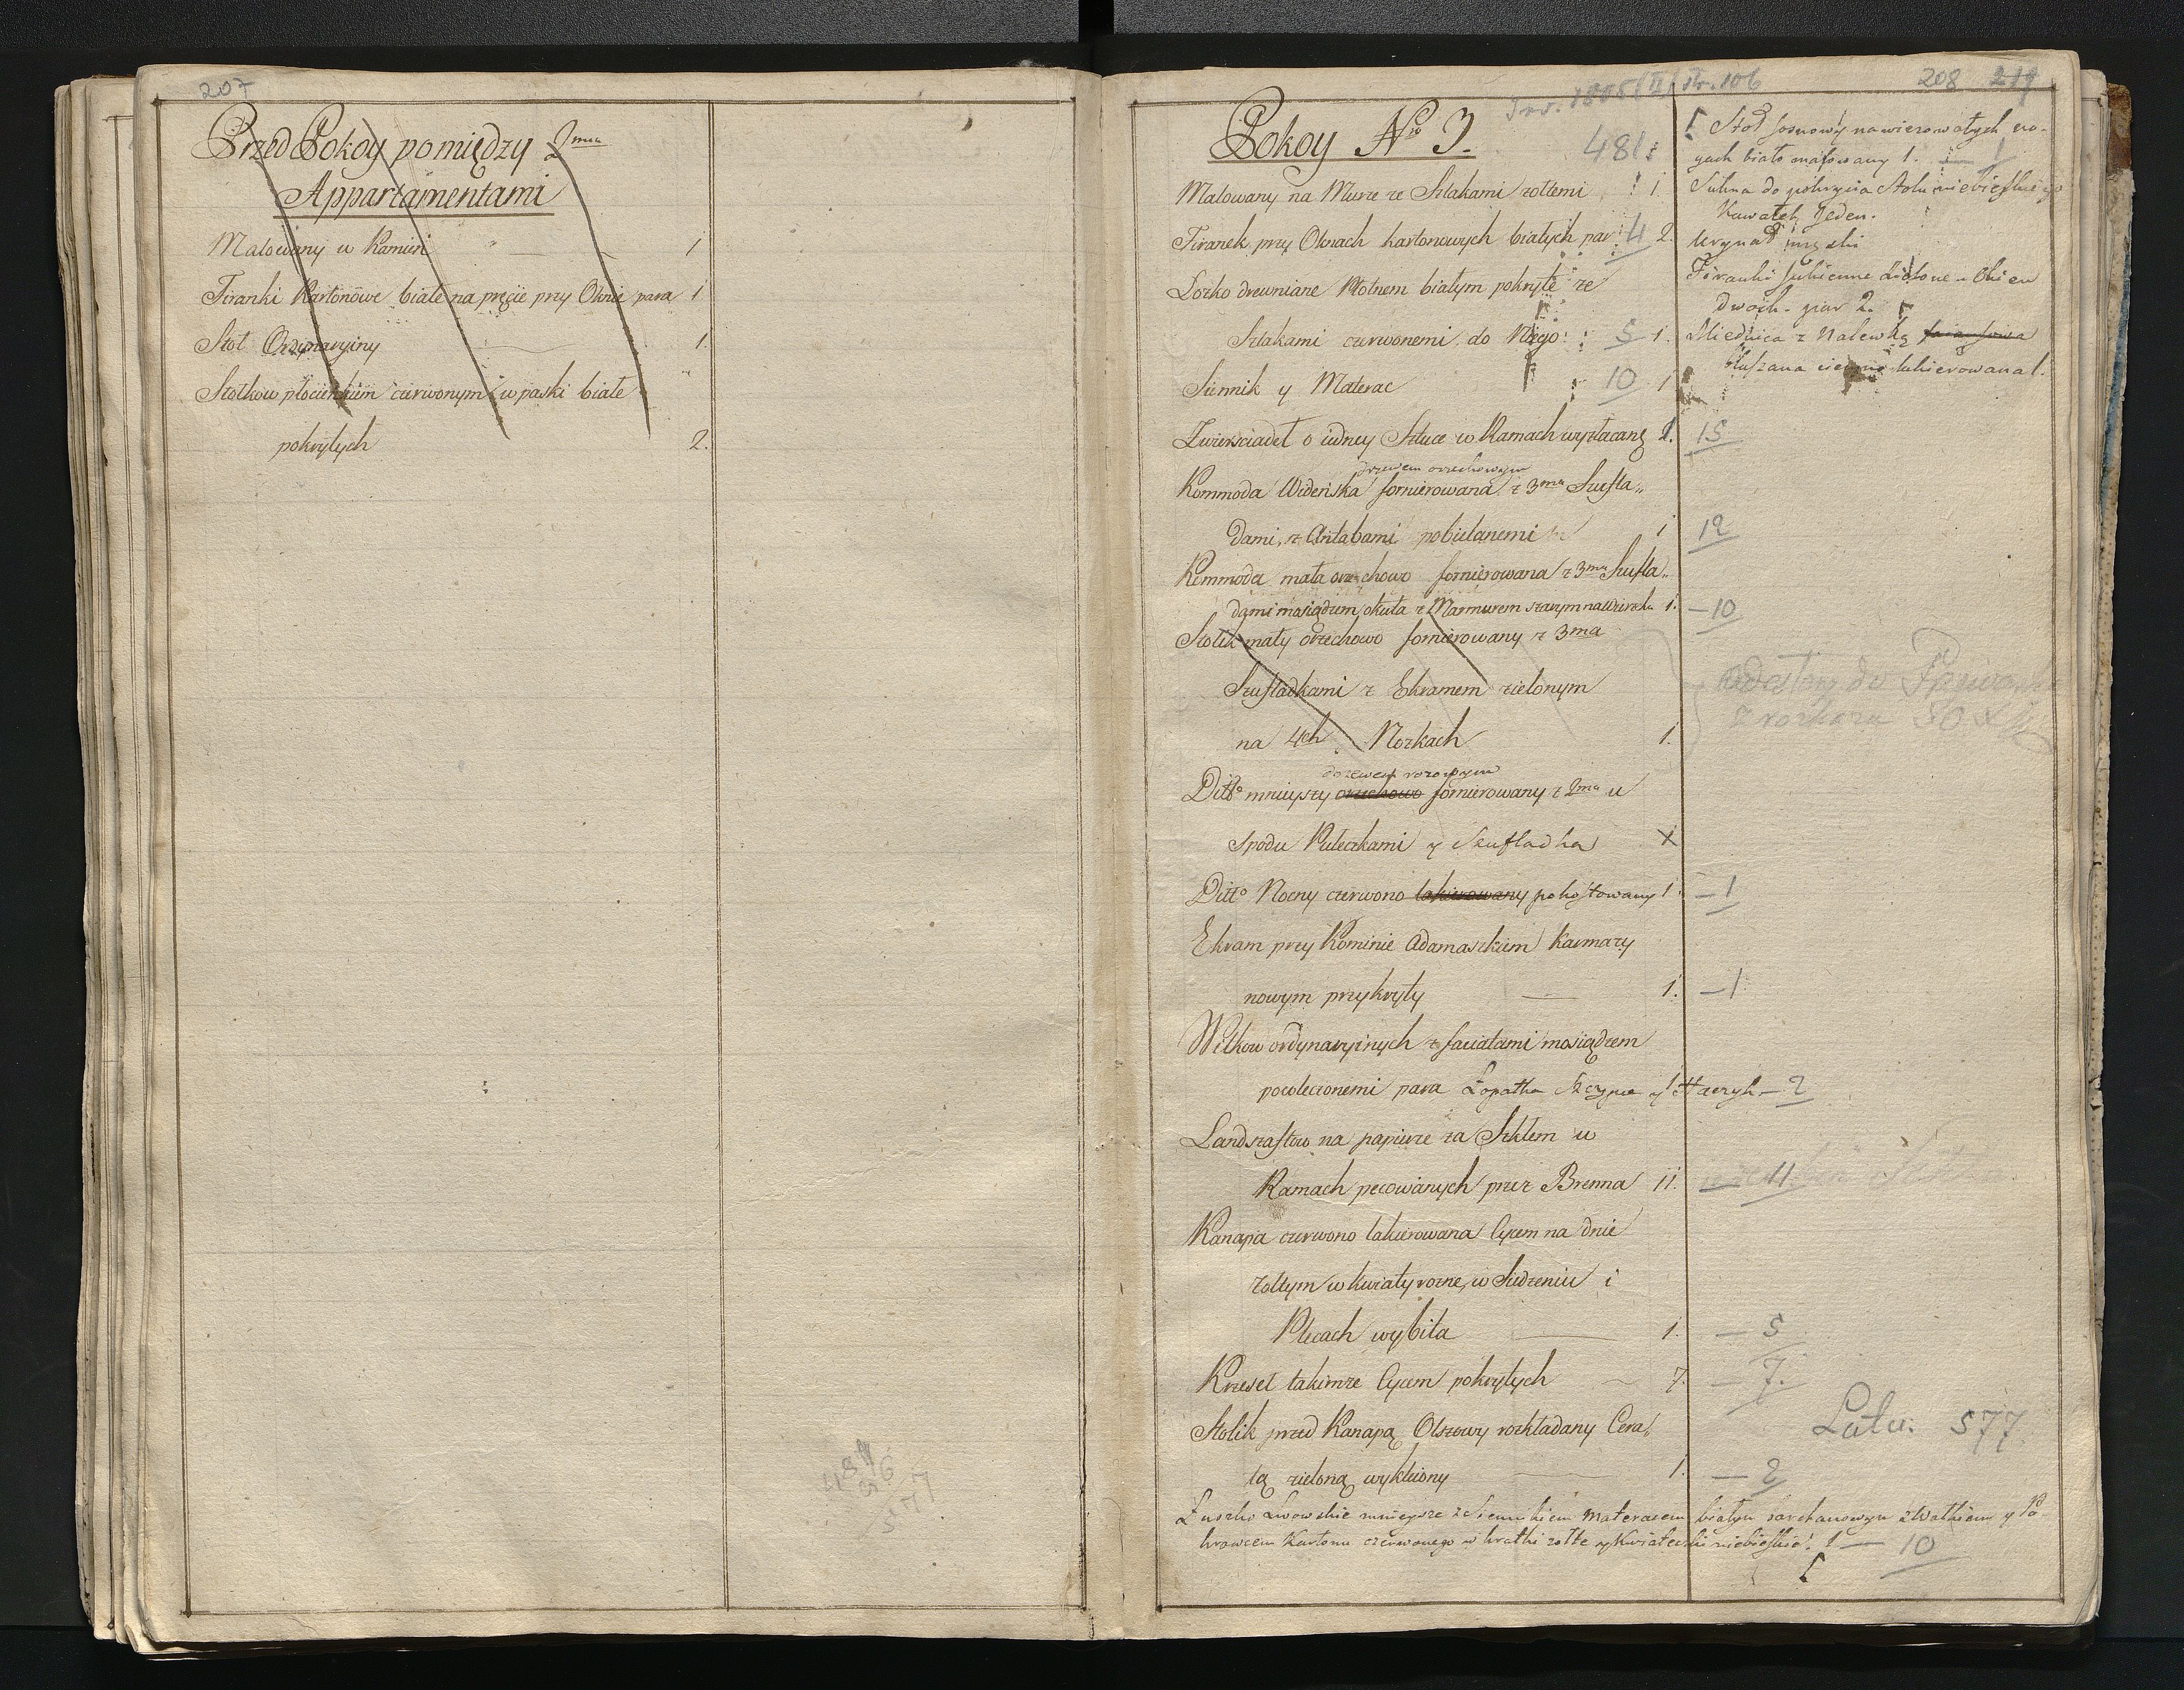 207
Przed Pokoy pomiędzy 2ma
Appartamentami
Malowany w Kamień 1
Firanki Kartonowe białe na pręcie przy Oknie para 1
Stoł Ordynaryiny 1.
Stołkow płocienkiem czerwonym w paski białe
pokrytych 2.
Inv. 1805 (II) str. 106
208 217
Pokoy No 3.
481
Malowany na Murze ze Szlakami żołtemi 1
Firanek przy Oknach kartonowych białych par 4 2.
Łożko drewniane Płotnem białym pokryte ze
Szlakami czerwonemi do Niego 5 1.
Siennik y Materac 10 1
Zwierściadeł o iedney Sztuce w Ramach wyzłacanę 1. 15
drzewem orzechowym
Kommoda Wideńska fornierowana z 3ma Szufla„
dami, z Antabami pobielanemi 1 12
Kommoda mała orzechowo fornierowana z 3ma Szufla„
dami mosiądzem okuta z Marmurem szarym na Wierzchu 1. — 10
Stolik mały orzechowo fornierowany z 3ma
Szufladkami z Ekranem zielonym
na 4ch Nozkach 1.
odesłany do
z rozkazu
drzewem rozowym
Ditto mnieyszy orzechowo fornierowany z 2ma u
Spodu Puleczkami y Szufladka X
Ditto Nocny czerwono lakierowany pokostowany 1 — 1
Ekram przy Kominie Adamaszkiem Karmazy
nowym przykryty — 1. — 1
Wilkow ordynaryinych z faciatami mosiądzem
powleczonemi para Łopatka Szczypce y Haczyk 1 — 2
Landszaftow na papierze za Szkłem w
Ramach pecowanych przez Brenna 11. — 11
Kanapa czerwono lakierowana Cycem na dnie
żołtym w kwiaty rozne, w Siedzeniu i
Plecach wybita — 1. — 5
Krzeseł takimze Cycem pokrytych — 7. — 7.
Stolik przed Kanapą Olszowy rozkładany Cera„
tą zieloną wykleiony 1. — 2
Łuszko Lwowskie mnieysze z Siennikiem materacem białym barchanowym z Wałkiem y Po
krowcem Kartonu czerwonego w kratki zołte y Kwiateczki niebieskie 1 — 10
Stoł sosnowy na wierowatych no-
gach biało malowany 1. — 1
Sukna do pokrycia Stołu niebieskiego
Kawałek Jeden.
Urynał męski
Firanki sukienne zielone u Okien
dwoch. par 2.
Miednica z Nalewką farforowa
blaszana ciemno lakierowana 1.
Latu. 577
481
96
577